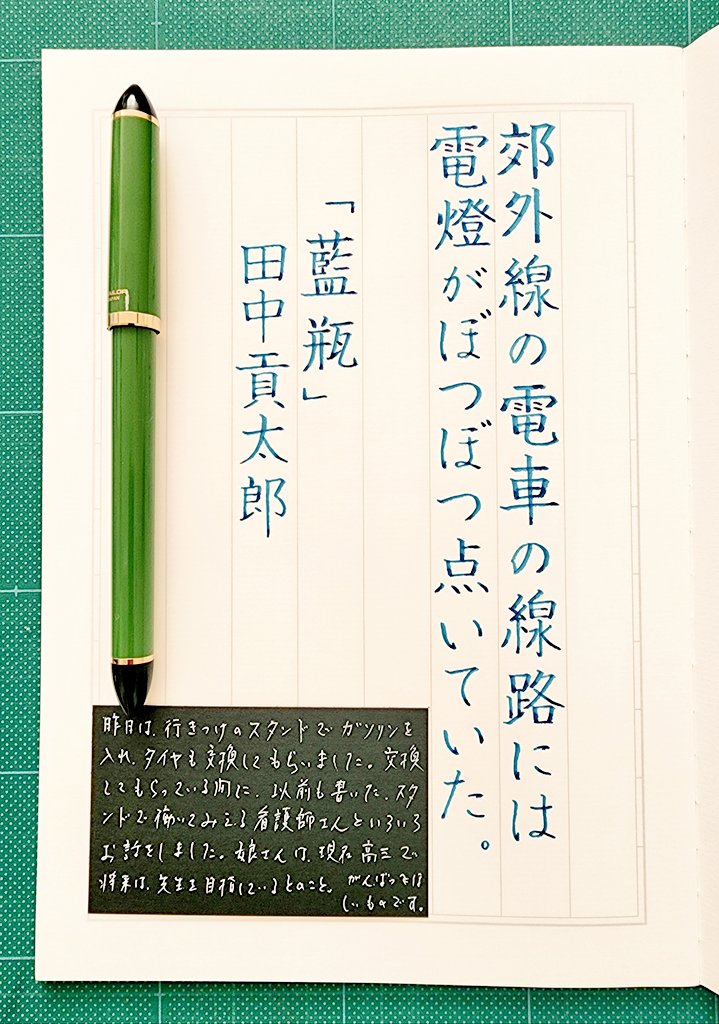 郊外線の電車の線路には
電燈がぼつぼつ点いていた。
「藍瓶」
田中貢太郎
昨日は、行きつけのスタンドでガソリンを
入れ、タイヤも交換してもらいました。交換
してもらっている間に、以前も書いた、スタ
ンドで働いてみえる看護師さんといろいろ
お話をしました。娘さんは、現在高三で
将来は、先生を目指しているとのこと。がんばってほ
しいものです。